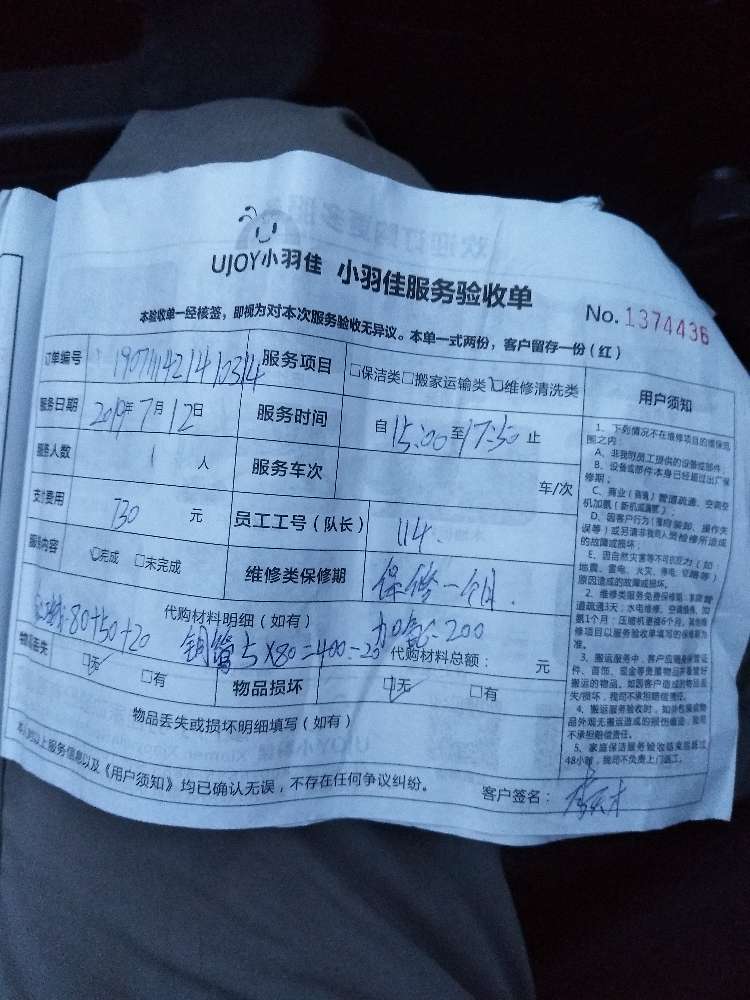 UJOY小羽佳 小羽佳服务验收单
No.1374436
本验收单一经核签，即视为对本次服务验收无异议。本单一式两份，客户留存一份（红）
订单编号 服务项目 □保洁类□搬家运输类□维修清洗类
服务日期 2019年7月12日 服务时间 自15:00至17:30止
服务人数 1人 服务车次 车/次
支付费用 730元 员工工号（队长） 114.
服务内容 □完成 □未完成 维修类保修期 保修一个月.
代购材料明细（如有） 加氟:200
80+50+20 铜管5×80=400-20 代购材料总额： 元
物品丢失 □无 □有 物品损坏 □无 □有
物品丢失或损坏明细填写（如有）
以上服务信息以及《用户须知》均已确认无误，不存在任何争议纠纷。 客户签名：
用户须知
1、下列情况不在维修项目的维保范
围之内：
A、非我司员工提供的设备或部件；
B、设备或部件本身已经超过出厂保
修期；
C、商业（商铺）管道疏通、空调空
机加氟（新机或漏氟）；
D、因客户行为（擅自装卸、操作失
误等）或另请非我司人员检修所造成
的故障或损坏；
E、因自然灾害等不可抗力（如
地震、雷电、火灾、
原因造成的故障或损坏。
2、维修类服务免费保修期：家庭管
道疏通3天；水电维修、空调维修、加
氟1个月；压缩机更换6个月，其他维
修项目以服务验收单填写的保修期为
准。
3、搬运服务中，客户应随身保管证
件、首饰、现金等贵重物品并看管好
搬运的物品。如因客户造成的物品丢
失/损坏，我司不承担赔偿责任。
4、搬运服务验收时，如外包装或物
品外观无搬运造成的损伤痕迹，我司
不承担赔偿责任。
5、家庭保洁服务验收结束后超过
48小时，我司不负责上门返工。